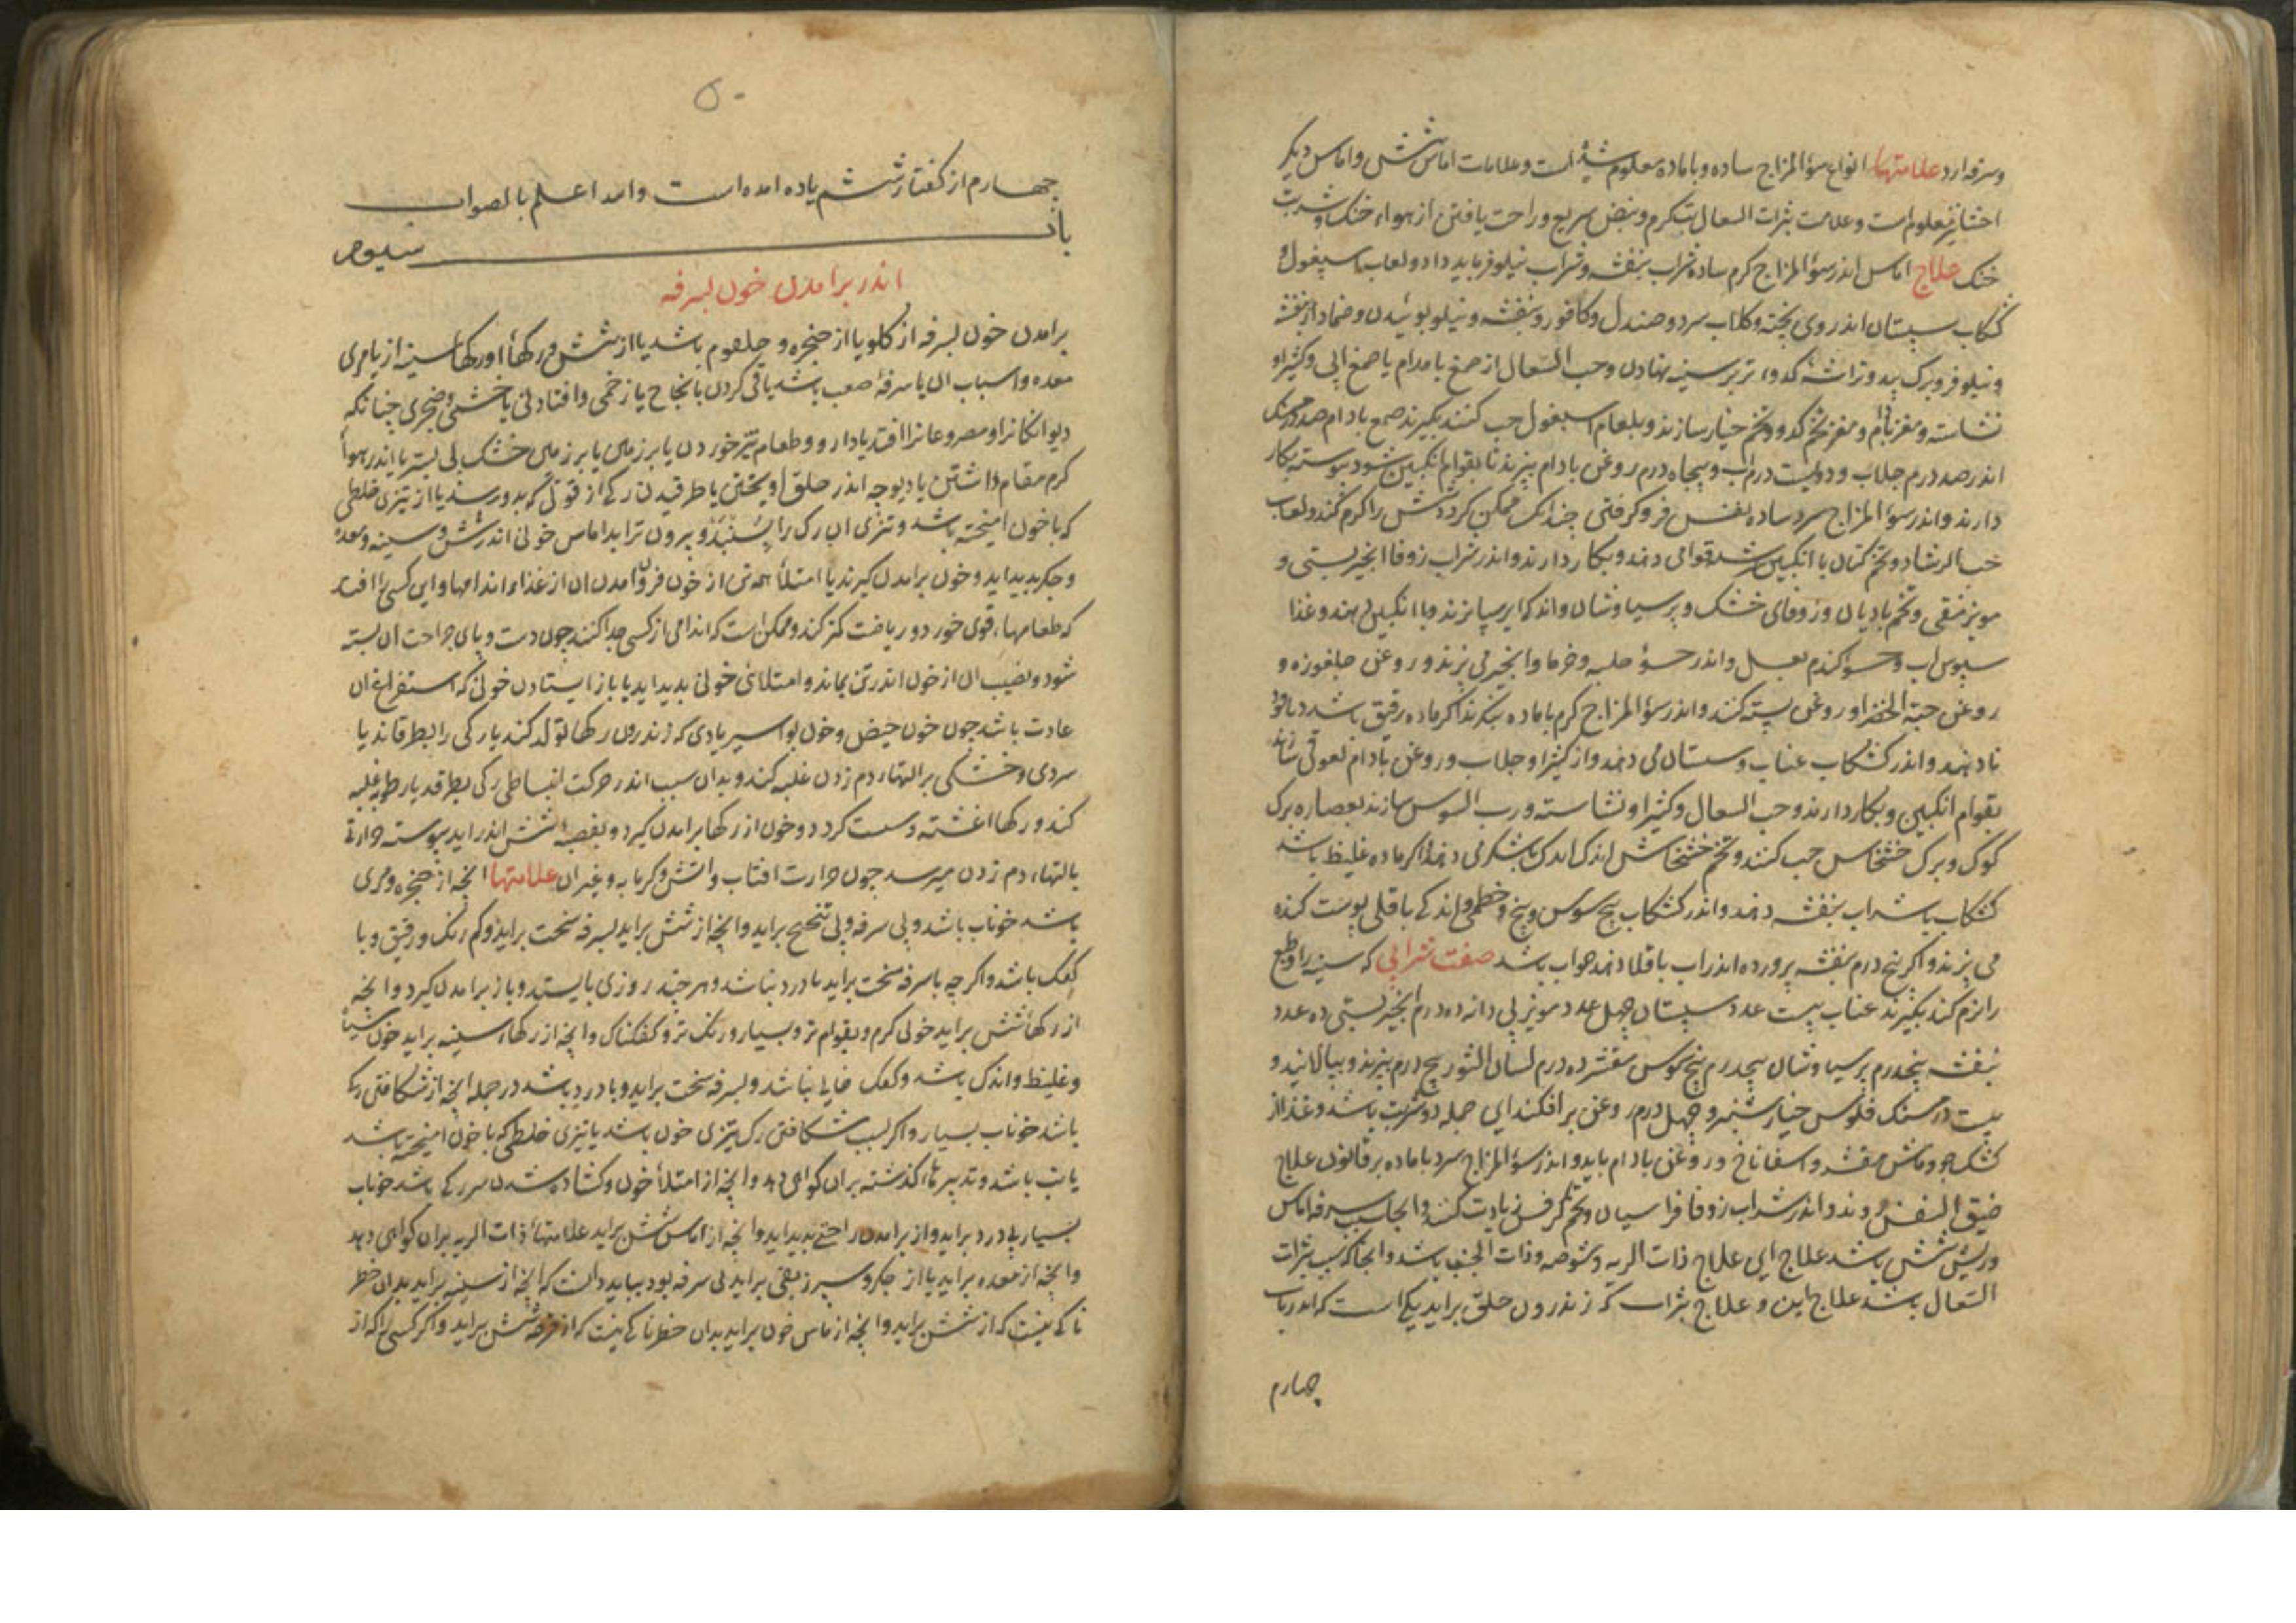 وسرفه ارد علامتها انواع سؤالمزاج ساده و باماده معلوم شده است و علامات اماس شش و اماس دیکر
احشا نیز معلوم است و علامت بثرات السعال تب کرم و نبض سریع و راحت یافتن از هواء خنک و شربت
خنک علاج اماس اندر سؤالمزاج کرم ساده شراب بنفشه و شراب نیلوفر باید داد و لعاب اسپغول و
کشکاب سپستان اندر وی پخته و کلاب سرد و صندل و کافور و بنفشه و نیلوفر بوئیدن و ضماد از بنفشه
و نیلوفر و برک بید و تراشه کدوء تر بر سینه نهادن و حب السعال از صمغ بادام یا صمغ و کثیرا و
نشاسته و مغز بادام و مغز تخم کدو و تخم خیار سازند و بلعاب اسپغول حب کنند بکیرند صمغ بادام صد درمسنک
اندر صد درم جلاب و دویست درم اب و پنجاه درم روغن بادام بپزند تا بقوام انکبین شود پیوسته بکار
دارند و اندر سؤالمزاج سرد ساده نفس فرو کرفتن چندانک ممکن کردد شش را کرم کند و لعاب
حب الرشاد و تخم کتان با انکبین سرشته قوامی دهند و بکار دارند و اندر شراب زوفا انجیر بستی و
مویز منقی و تخم بادیان و زوفای خشک و پرسیاوشان و اندکی ایرسا پزند و با انکبین دهند و غذا
سپوس اب و حسو کندم بعسل و اندر حسو حلبه و خرما و انجیر می پزند و روغن جلغوزه و
روغن حبة الخضرا و روغن پسته کنند و اندر سؤالمزاج کرم باماده بنکرند اکر ماده رقیق باشد
نا دهند و اندر کشکاب عناب و سپستان می دهند و از کثیرا و جلاب و روغن بادام لعوقی سازند
بقوام انکبین و بکار دارند و حب السعال و کثیرا و نشاسته و رب السوس سازند بعصاره برک
کوک و برک خشخاش حب کنند و تخم خشخاش اندک اندک با شکر می دهند و اکر ماده غلیظ باشد
کشکاب با شراب بنفشه دهند و اندر کشکاب بیخ سوس و بیخ خطمی و اندکی باقلی پوست کنده
می پزند و اکر پنج درم بنفشه پرورده اندر اب باقلا دهند صواب باشد صفت شرابی که سینه را و طبع
را نرم کند بکیرند عناب بیست عدد سپستان چهل عدد مویز بی دانه ده درم انجیر بستی ده عدد
بنفشه پنجدرم پرسیاوشان پنجدرم بیخ سوس مقشر ده درم لسان الثور پنج درم بپزند و بپالایند و
بیست درمسنک فلوس خیارشنبر و چهل درم روغن برافکند این جمله دو شربت باشد و غذا از
کشک جو و ماش مقشر و اسفاناخ و روغن بادام باید و اندر سؤالمزاج سرد باماده بر قانون علاج
ضیق النفس روند و اندر شراب زوفا فراسیون و تخم کرفس زیادت کنند و انجا که سبب سرفه اماس
و ریش شش باشد علاج این علاج ذات الریه و شوصه و ذات الجنب باشد و انجا که سبب بثرات
السعال باشد علاج این و علاج بثرات که زندرون حلق براید یکی است که اندر باب
چهارم
۵۰
چهارم از کفتار ششم یاد امده است والله اعلم بالصواب
باب سیوم
اندر برامدن خون بسرفه
برامدن خون بسرفه از کلو یا از حنجره و حلقوم باشد یا از شش و رکهاء او رکهاء سینه از یا مری
معده و اسباب ان یا سرفه صعب باشد یا قی کردن یا زخمی و افتادنی یا خشمی و ضجری چنانکه
دیوانکان را و مصروعان را افتد یا دارو و طعام تیز خوردن یا بر زمین یا بر زمین خشک بی بستر یا اندر هواء
کرم مقام داشتن یا دیوچه اندر حلق اویختن یا طرقیدن رکی از قوتی که بدو رسد یا از تیزی خلطی
که با خون امیخته باشد و تیزی ان رک را و بیرون تراید اماس خونی اندر شش و سینه و معده
و جکر پدید اید و خون برامدن کیرند یا امتلاء همه تن از خون فزون امدن ان از غذاء اندامها و این کسی را افتد
که طعامهاء قوی خورد و ریاضت کمتر کند و ممکن است که اندامی از کسی جدا کنند چون دست و پای جراحت ان بسته
شود و نصیب ان از خون اندر تن بماند و امتلائی خونی پدید اید یا باز ایستادن خونی که استفراغ ان
عادت باشد چون خون حیض و خون بواسیر یا دی که زندرون رکها تولد کند یا رکی را بطرقاند یا
سردی و خشکی بر التهاء دم زدن غلبه کند و بدان سبب اندر حرکت انبساطی رکی بطرقد یا رطوبه غلبه
کند و رکها اغشته و سست کردد و خون از رکها برامدن کیرد و بقصبه شش اندر اید پیوسته حرارت
بالتهاء دم زدن میرسد چون حرارت افتاب و اتش و کرمابه و غیر ان علامتها انچه از حنجره و مری
باشد خوناب باشد و بی سرفه و بی تنحنح براید و انچه از شش براید بسرفه سخت براید و کم رنک و رقیق و با
کفک باشد و اکر چه با سرفه سخت براید با درد نباشد و هر چند روزی بایستد و باز برامدن کیرد و انچه
از رکهاء شش براید خونی کرم و بقوام تر و بسیار و رنک تر و کفکناک و انچه از رکهاء سینه براید خون سیاه
و غلیظ و اندک باشد و کفک نباشد و بسرفه سخت براید و با درد باشد در جمله انچه از شکافتن رک
باشد خوناب بسیار و اکر بسبب شکافتن رک تیزی خون باشد یا تیزی خلطی که با خون امیخته باشد
یا تب باشد و تدبیرهاء کذشته بران کواهی دهد و انچه از امتلاء خون و کشاده شدن سر رکی باشد خوناب
بسیار بی درد براید و از برامدن راحتی پدید اید و انچه از اماس شش براید علامتهاء ذات الریه بران کواهی دهد
و انچه از معده براید یا از جکر و سپرز بقی براید بی سرفه بود بباید دانست که انچه از سینه براید بدان خطر
ناکی نیست که از شش براید و انچه از ماس خون براید بدان خطرناکی نیست که از قرحه شش براید و اکر کسی را که از